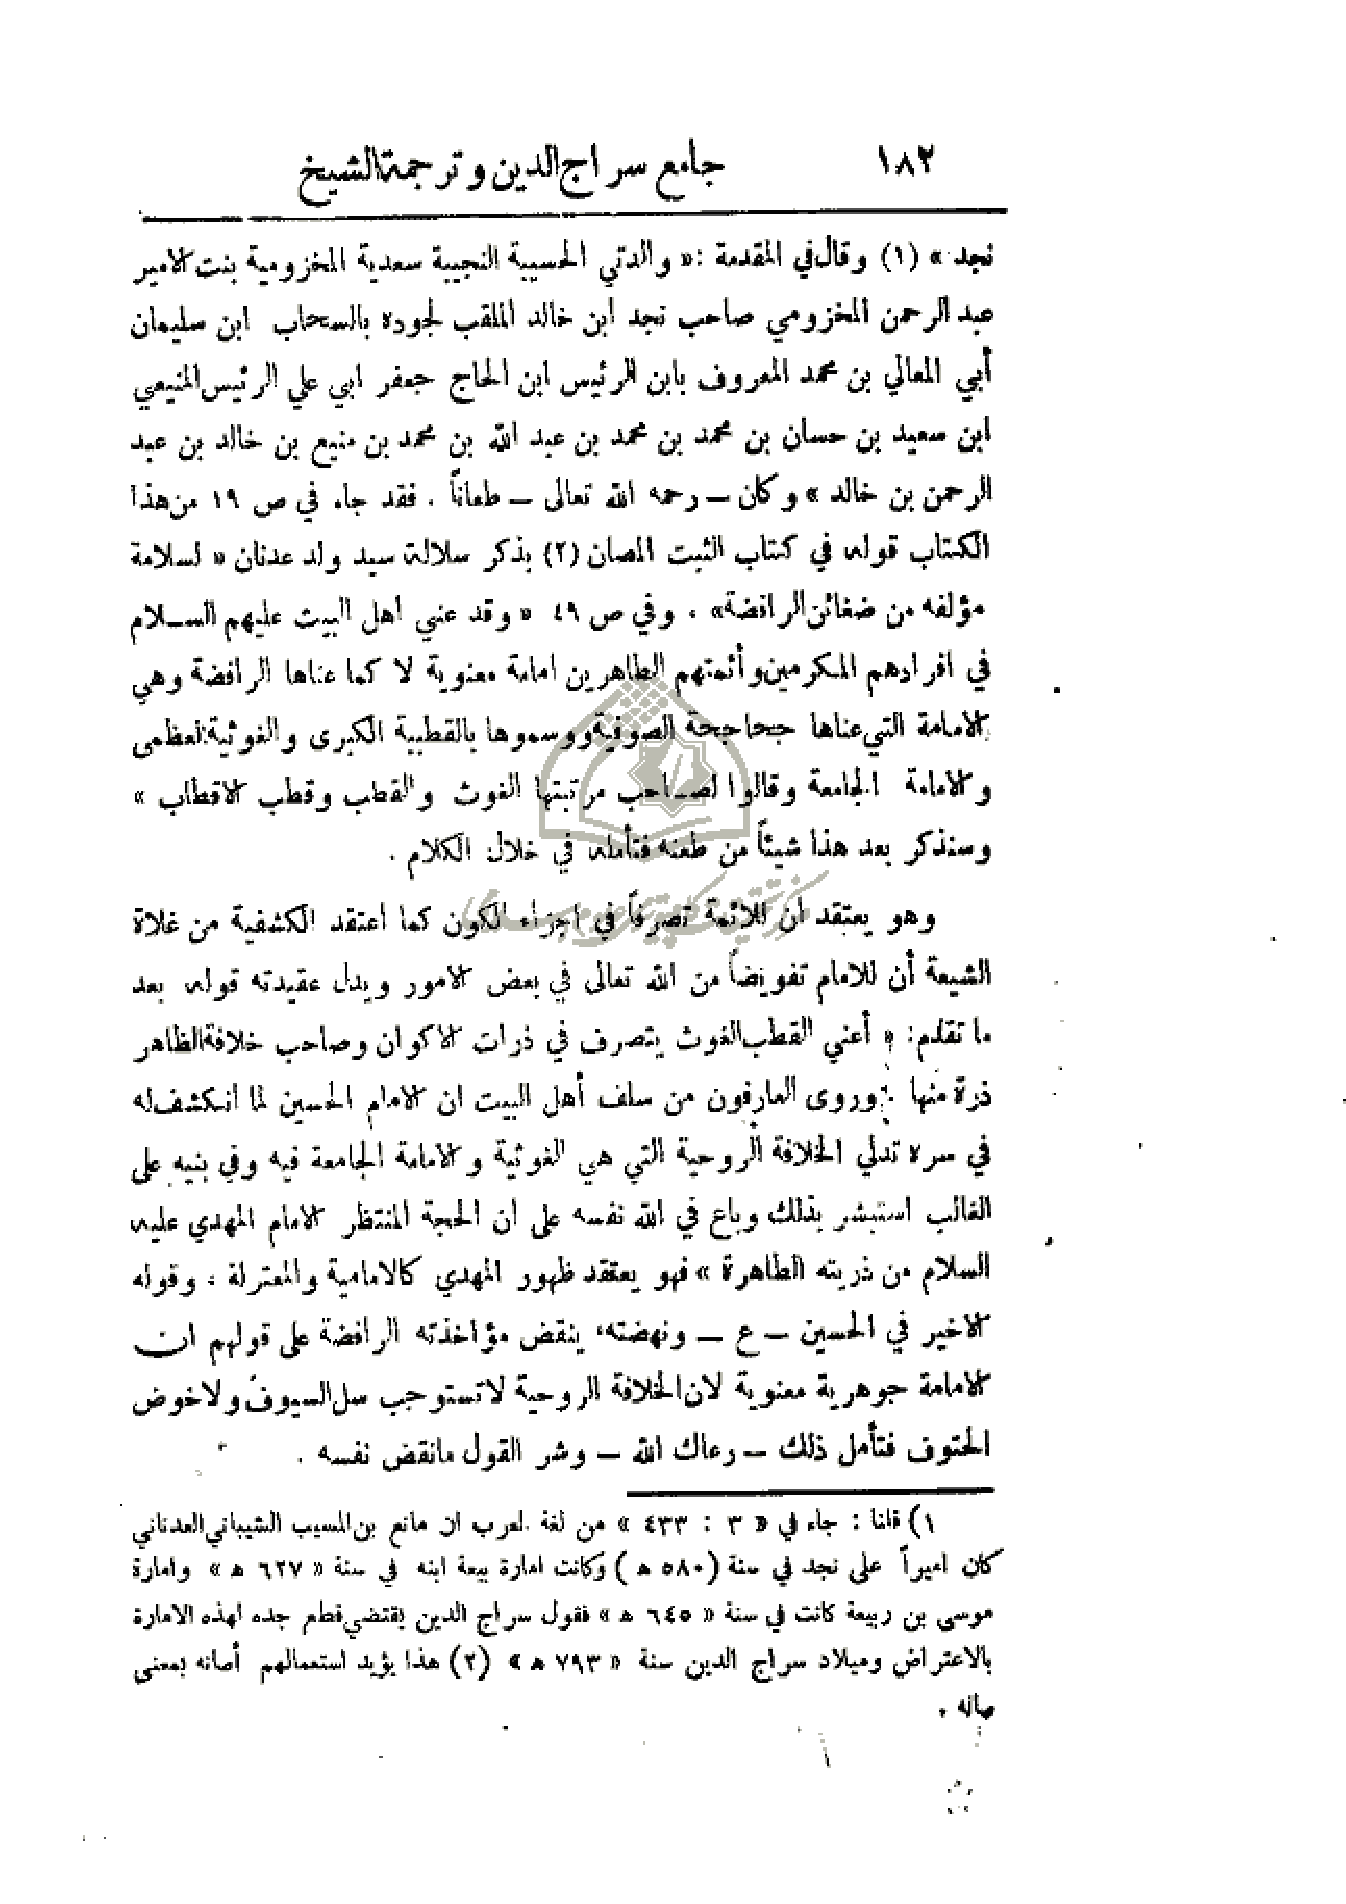 ١٨٢ جامع سراج الدين وترجمة الشيخ
نجد » (١) وقال في المقدمة : « والدتي الحسيبة النجيبة سعدية المخزومية بنت الامير
عبد الرحمن المخزومي صاحب نجد ابن خالد الملقب لجوده بالسحاب ابن سليمان
أبي المعالي بن محمد المعروف بابن الرئيس ابن الحاج جعفر ابي علي الرئيس المنيعي
ابن سعيد بن حسان بن محمد بن محمد بن عبد الله بن محمد بن منيع بن خالد بن عبد
الرحمن بن خالد » وكان ــ رحمه الله تعالى ــ طعاناً . فقد جاء في ص ١٩ من هذا
الكتاب قوله في كتاب الثبت المصان (٢) بذكر سلالة سيد ولد عدنان « لسلامة
مؤلفه من ضغائن الرافضة» . وفي ص ٤٩ « وقد عني أهل البيت عليهم الســلام
في افرادهم المكرمين وأئمتهم الطاهرين امامة معنوية لا كما عناها الرافضة وهي
الامامة التي عناها جحاجحة الصوفية ووسموها بالقطبية الكبرى والغوثية العظمى
والامامة الجامعة وقالوا لصــاحب مرتبتها الغوث والقطب وقطب الاقطاب »
وسنذكر بعد هذا شيئاً من طعنه فتأمله في خلال الكلام .
وهو يعتقد ان للائمة تصرفاً في اجزاء الكون كما اعتقد الكشفية من غلاة
الشيعة أن للامام تفويضاً من الله تعالى في بعض الامور ويدل عقيدته قوله بعد
ما تقدم: « أعني القطب الغوث يتصرف في ذرات الاكوان وصاحب خلافة الظاهر
ذرة منها . وروى العارفون من سلف أهل البيت ان الامام الحسين لما انكشف له
في سره تدلي الخلافة الروحية التي هي الغوثية والامامة الجامعة فيه وفي بنيه على
الغالب استبشر بذلك وباع في الله نفسه على ان الحجة المنتظر الامام المهدي عليه
السلام من ذريته الطاهرة » فهو يعتقد ظهور المهدي كالامامية والمعتزلة . وقوله
الاخير في الحسين ــ ع ــ ونهضته، ينقض مؤاخذته الرافضة على قولهم ان
الامامة جوهرية معنوية لان الخلافة الروحية لا تستوجب سل السيوف ولا خوض
الحتوف فتأمل ذلك ــ رعاك الله ــ وشر القول ما نقض نفسه .
١) قلنا : جاء في « ٣ : ٤٣٣ » من لغة العرب ان مانع بن المسيب الشيباني العدناني
كان اميراً على نجد في سنة (٥٨٠ هـ) وكانت امارة بيعة ابنه في سنة « ٦٢٧ هـ » وامارة
موسى بن ربيعة كانت في سنة « ٦٤٥ هـ » فقول سراج الدين يقتضي قطع جده لهذه الامارة
بالاعتراض وميلاد سراج الدين سنة « ٧٩٣ هـ » (٢) هذا يؤيد استعمالهم أصانه بمعنى
صانه .